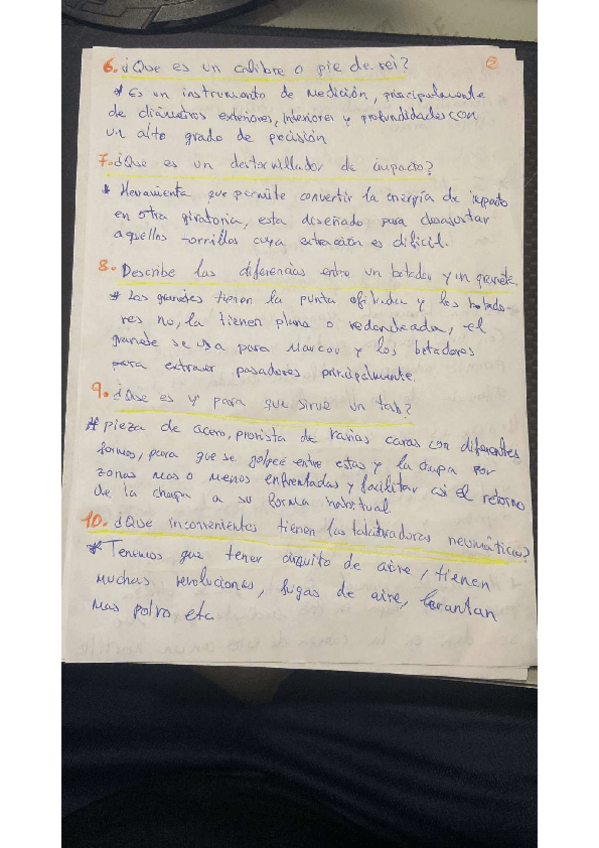 6. ¿Que es un calibre o pie de rei? 2
* Es un instrumento de medición, principalmente
de diámetros exteriores, interiores y profundidades con
un alto grado de precisión
7. ¿Que es un destornillador de impacto?
* Herramienta que permite convertir la energía de impacto
en otra giratoria, esta diseñado para desajustar
aquellos tornillos cuya extracción es dificil.
8. Describe las diferencias entre un botador y un granete.
* Los granetes tienen la punta afilada y los botado-
res no, la tienen plana o redondeada, el
granete se usa para marcar y los botadores
para extraer pasadores principalmente.
9. ¿Que es y para que sirve un tas?
* pieza de acero, provista de varias caras con diferentes
formas, para que se golpeé entre estas y la chapa por
zonas mas o menos enfrentadas y facilitar asi el retorno
de la chapa a su forma habitual.
10. ¿Que inconvenientes tienen las taladradoras neumáticas?
* Tenemos que tener circuito de aire, tienen
muchas revoluciones, fugas de aire, levantan
mas polvo etc